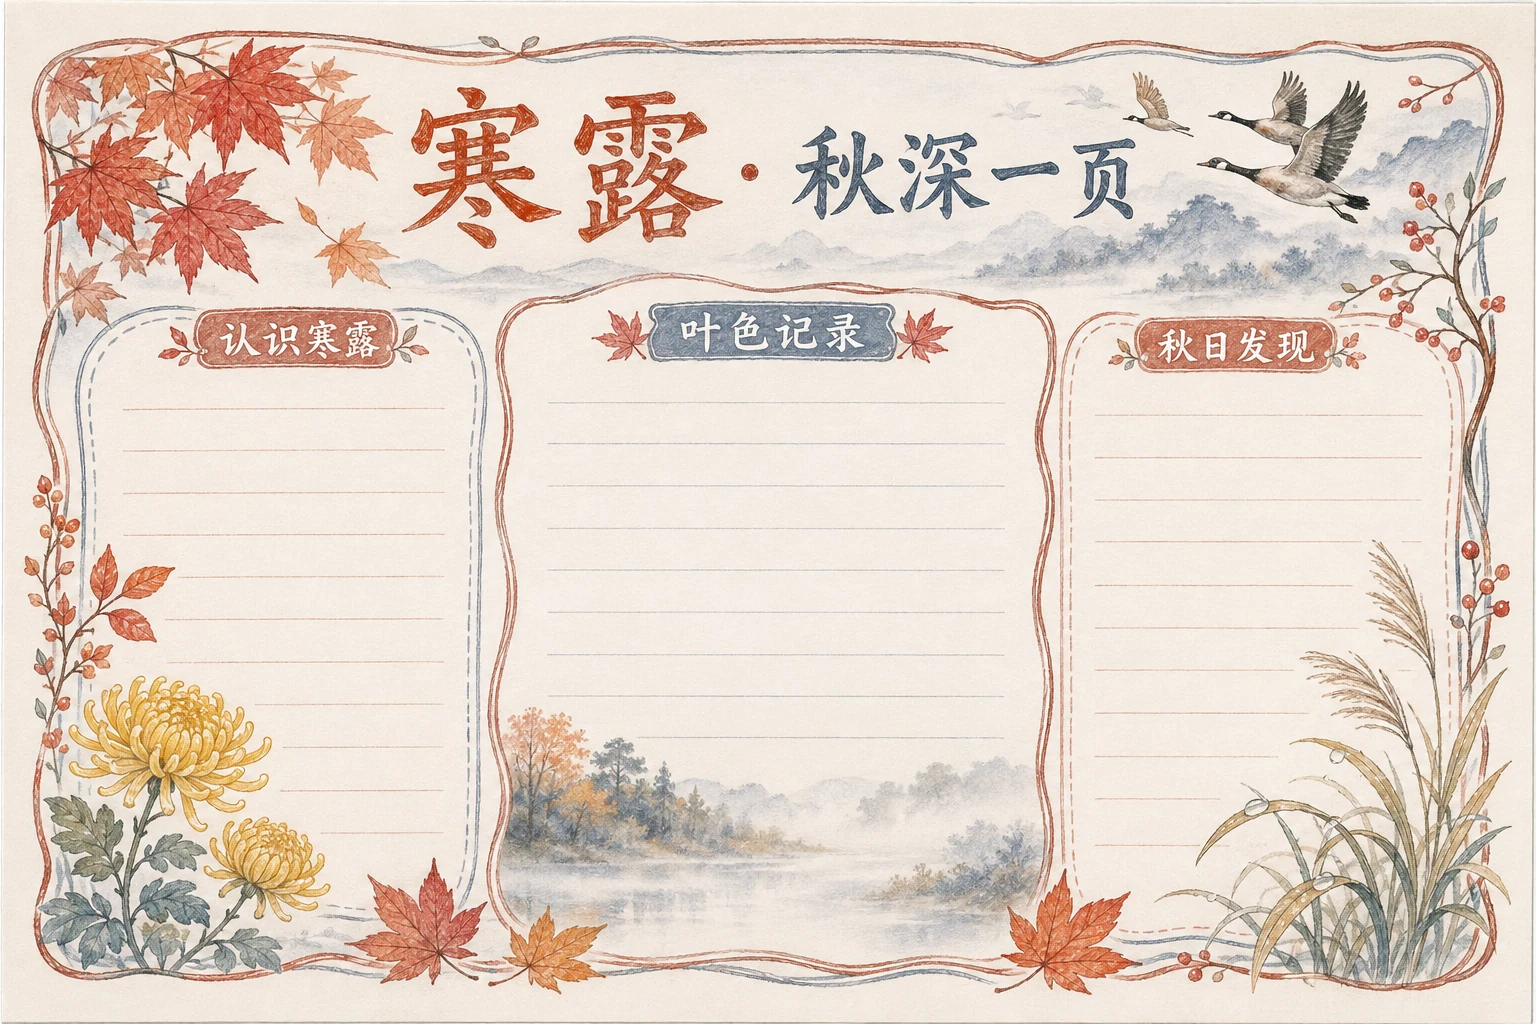 寒露·秋深一页
认识寒露
叶色记录
秋日发现